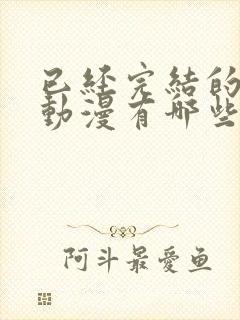 已經完結的
動漫有哪些
阿斗最愛鱼